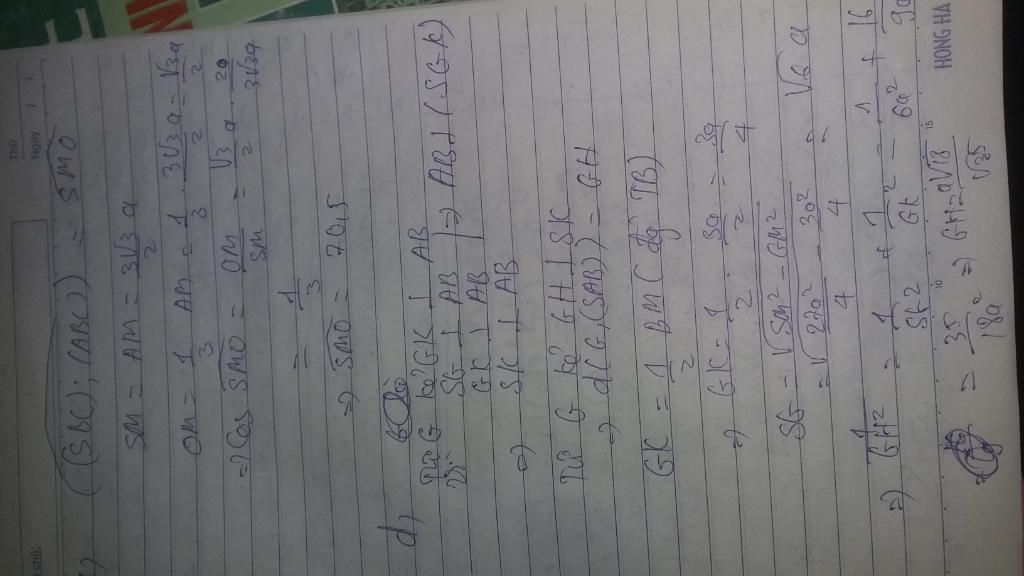 Thứ
Ngày / /
chú:
c, ((SBC);(ABC)) = SMO
SM = AM = 3√3/2 a
OM = 1/3 AM = 1/3 . 3√3/2 a = √3a/2
=> Cos SMO = OM/SM = √3/2 a . 2a/3√3a
= 1/3
=> SMO = 70,5
d,
Từ G kẻ GK ⊥ AB
Vì SG ⊥ AB
GK ⊥ AB | => AB ⊥ (SGK)
=> SK ⊥ AB
Từ G kẻ GH ⊥ SK
=> d(G,(SAB)) = GH
GK = 1/2 BM ( đg TB)
=> GK = 1/2 . 3a/2 = 3a/4
SG = √SM² - GM²
= √27a²/4 - 3a²/4 = √6 a
=> 1/GH² = 1/SK² + 1/GK² = 1/6a² + 16/9a
= 35/18a² => GH = a√18/√35
10
15
HONG HA